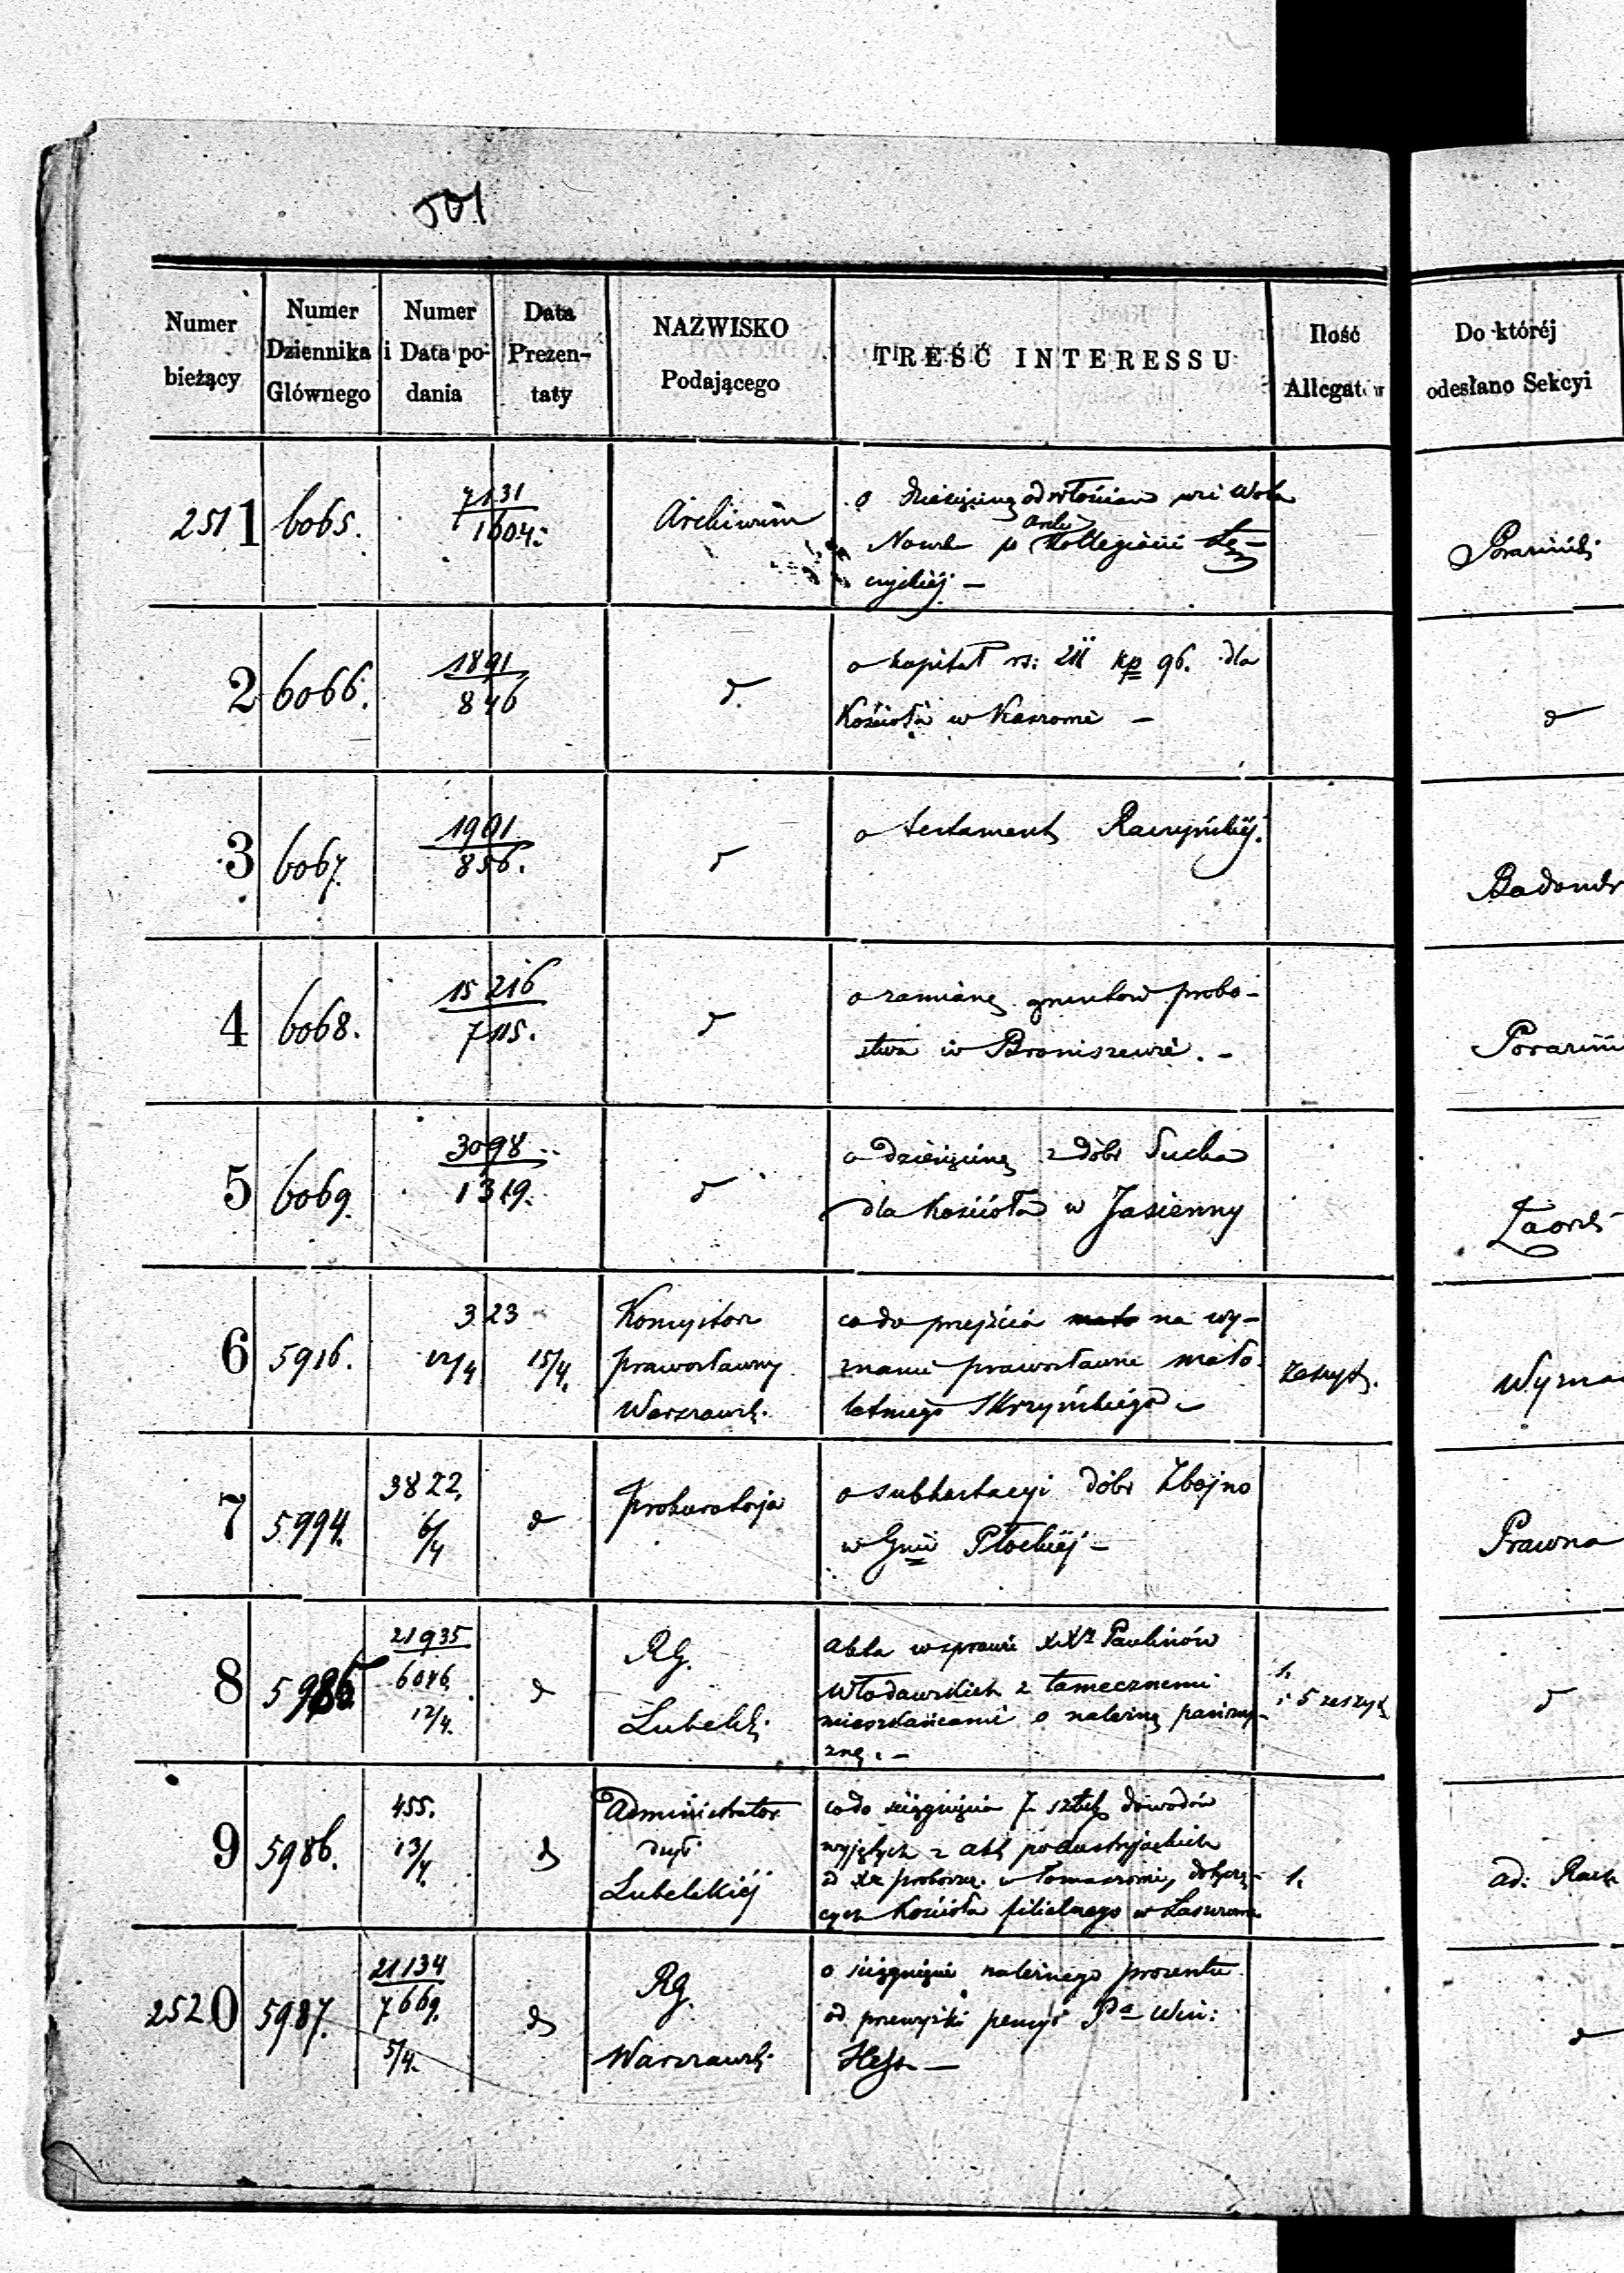 501
Numer bieżący
Numer Dziennika Głównego
Numer i Data podania
Data Prezentaty
NAZWISKO Podającego
TREŚĆ INTERESSU
Ilość Allegatów
Do któréj odesłano Sekcyi
2511 6065. 7131 1604. Archiwum
o dziesięcinę od włościan wsi Wola
Nowa po archi Kollegiacie Łę-
czyckiéj -
2 6066. 1891 846 d
o kapitał rs: kp 96. dla
Kościoła w
d
3 6067. 1901 856. d
o testament Raczyńskiéj.
4 6068. 15216 7115. d
o zamianę gruntów probo-
stwa w Broniszewie. -
5 6069. 3098 1319. d
o dziesięcinę z dóbr Sucha
dla Kościoła w Jasienny
6 5916. 323 12/4 15/4.
Konsystorz
prawosławny
Warszawsk.
co do przejścia na wy-
znanie prawosławne mało-
letniego Skrzyńskiego -
zeszyt.
7 5994. 3822. 6/4 d Prokuratorja
o subhastacyi dóbr Zbojno
w Gnii Płockiéj -
Prawna
8 21935 6046. 12/4. d
RG.
Lubelsk.
akta w sprawie XX Paulinów
Włodawskich z tamecznemi
mieszkańcami o należną pańszczy-
znę. -
1.
i 5 zeszyt
d
9 5986. 455. 13/4. d
Administrator
dyec
Lubelskiéj
co do ściągnięcia 7 sztuk dowodów
wyjętych z akt poaustryjackich
od Xa proboszcz. w Tomaszowie, dotyczą-
cych Kościoła filialnego w
1.
ad:
2520 5987. 21134 7669. 5/4. d
RG.
Warszawsk.
o ściągnięcie należnego procentu
od przewyżki pensyi Pa Win:
Hess -
d